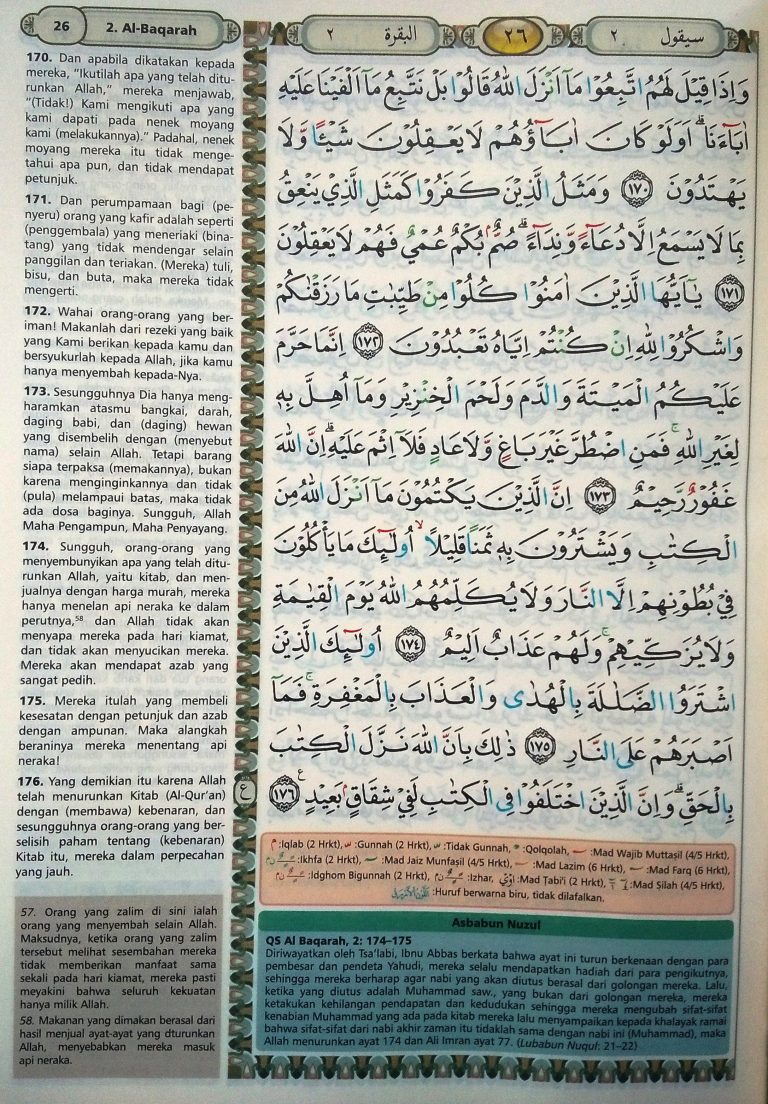 26
2. Al-Baqarah
البقرة ٢
٢٦
سيقول ٢
170. Dan apabila dikatakan kepada
mereka, "Ikutilah apa yang telah ditu-
runkan Allah," mereka menjawab,
"(Tidak!) Kami mengikuti apa yang
kami dapati pada nenek moyang
kami (melakukannya)." Padahal, nenek
moyang mereka itu tidak menge-
tahui apa pun, dan tidak mendapat
petunjuk.
171. Dan perumpamaan bagi (pe-
nyeru) orang yang kafir adalah seperti
(penggembala) yang meneriaki (bina-
tang) yang tidak mendengar selain
panggilan dan teriakan. (Mereka) tuli,
bisu, dan buta, maka mereka tidak
mengerti.
172. Wahai orang-orang yang ber-
iman! Makanlah dari rezeki yang baik
yang Kami berikan kepada kamu dan
bersyukurlah kepada Allah, jika kamu
hanya menyembah kepada-Nya.
173. Sesungguhnya Dia hanya meng-
haramkan atasmu bangkai, darah,
daging babi, dan (daging) hewan
yang disembelih dengan (menyebut
nama) selain Allah. Tetapi barang
siapa terpaksa (memakannya), bukan
karena menginginkannya dan tidak
(pula) melampaui batas, maka tidak
ada dosa baginya. Sungguh, Allah
Maha Pengampun, Maha Penyayang.
174. Sungguh, orang-orang yang
menyembunyikan apa yang telah ditu-
runkan Allah, yaitu kitab, dan men-
jualnya dengan harga murah, mereka
hanya menelan api neraka ke dalam
perutnya,⁵⁸ dan Allah tidak akan
menyapa mereka pada hari kiamat,
dan tidak akan menyucikan mereka.
Mereka akan mendapat azab yang
sangat pedih.
175. Mereka itulah yang membeli
kesesatan dengan petunjuk dan azab
dengan ampunan. Maka alangkah
beraninya mereka menentang api
neraka!
176. Yang demikian itu karena Allah
telah menurunkan Kitab (Al-Qur'an)
dengan (membawa) kebenaran, dan
sesungguhnya orang-orang yang ber-
selisih paham tentang (kebenaran)
Kitab itu, mereka dalam perpecahan
yang jauh.
57. Orang yang zalim di sini ialah
orang yang menyembah selain Allah.
Maksudnya, ketika orang yang zalim
tersebut melihat sesembahan mereka
tidak memberikan manfaat sama
sekali pada hari kiamat, mereka pasti
meyakini bahwa seluruh kekuatan
hanya milik Allah.
58. Makanan yang dimakan berasal dari
hasil menjual ayat-ayat yang dturunkan
Allah, menyebabkan mereka masuk
api neraka.
وَاِذَا قِيْلَ لَهُمُ اتَّبِعُوْا مَآ اَنْزَلَ اللّٰهُ قَالُوْا بَلْ نَتَّبِعُ مَآ اَلْفَيْنَا عَلَيْهِ
اٰبَاۤءَنَا ۗ اَوَلَوْ كَانَ اٰبَاۤؤُهُمْ لَا يَعْقِلُوْنَ شَيْـًٔا وَّلَا
يَهْتَدُوْنَ ﴿١٧٠﴾ وَمَثَلُ الَّذِيْنَ كَفَرُوْا كَمَثَلِ الَّذِيْ يَنْعِقُ
بِمَا لَا يَسْمَعُ اِلَّا دُعَاۤءً وَّنِدَاۤءً ۗ صُمٌّۢ بُكْمٌ عُمْيٌ فَهُمْ لَا يَعْقِلُوْنَ
﴿١٧١﴾ يٰٓاَيُّهَا الَّذِيْنَ اٰمَنُوْا كُلُوْا مِنْ طَيِّبٰتِ مَا رَزَقْنٰكُمْ
وَاشْكُرُوْا لِلّٰهِ اِنْ كُنْتُمْ اِيَّاهُ تَعْبُدُوْنَ ﴿١٧٢﴾ اِنَّمَا حَرَّمَ
عَلَيْكُمُ الْمَيْتَةَ وَالدَّمَ وَلَحْمَ الْخِنْزِيْرِ وَمَآ اُهِلَّ بِهٖ
لِغَيْرِ اللّٰهِ ۚ فَمَنِ اضْطُرَّ غَيْرَ بَاغٍ وَّلَا عَادٍ فَلَآ اِثْمَ عَلَيْهِ ۗ اِنَّ اللّٰهَ
غَفُوْرٌ رَّحِيْمٌ ﴿١٧٣﴾ اِنَّ الَّذِيْنَ يَكْتُمُوْنَ مَآ اَنْزَلَ اللّٰهُ مِنَ
الْكِتٰبِ وَيَشْتَرُوْنَ بِهٖ ثَمَنًا قَلِيْلًا ۙ اُولٰۤىِٕكَ مَا يَأْكُلُوْنَ
فِيْ بُطُوْنِهِمْ اِلَّا النَّارَ وَلَا يُكَلِّمُهُمُ اللّٰهُ يَوْمَ الْقِيٰمَةِ
وَلَا يُزَكِّيْهِمْ ۚ وَلَهُمْ عَذَابٌ اَلِيْمٌ ﴿١٧٤﴾ اُولٰۤىِٕكَ الَّذِيْنَ
اشْتَرَوُا الضَّلٰلَةَ بِالْهُدٰى وَالْعَذَابَ بِالْمَغْفِرَةِ ۚ فَمَآ
اَصْبَرَهُمْ عَلَى النَّارِ ﴿١٧٥﴾ ذٰلِكَ بِاَنَّ اللّٰهَ نَزَّلَ الْكِتٰبَ
بِالْحَقِّ ۗ وَاِنَّ الَّذِيْنَ اخْتَلَفُوْا فِى الْكِتٰبِ لَفِيْ شِقَاقٍۢ بَعِيْدٍ ﴿١٧٦﴾ ع
ع
:Iqlab (2 Hrkt), :Gunnah (2 Hrkt), :Tidak Gunnah, :Qolqolah, :Mad Wajib Muttaṣil (4/5 Hrkt),
:Ikhfa (2 Hrkt), :Mad Jaiz Munfaṣil (4/5 Hrkt), :Mad Lazim (6 Hrkt), :Mad Farq (6 Hrkt),
:Idghom Bigunnah (2 Hrkt), :Izhar, :Mad Ṭabi'i (2 Hrkt), :Mad Ṣilah (4/5 Hrkt),
:Huruf berwarna biru, tidak dilafalkan.
Asbabun Nuzul
QS Al Baqarah, 2: 174–175
Diriwayatkan oleh Tsa'labi, Ibnu Abbas berkata bahwa ayat ini turun berkenaan dengan para
pembesar dan pendeta Yahudi, mereka selalu mendapatkan hadiah dari para pengikutnya,
sehingga mereka berharap agar nabi yang akan diutus berasal dari golongan mereka. Lalu,
ketika yang diutus adalah Muhammad saw., yang bukan dari golongan mereka, mereka
ketakukan kehilangan pendapatan dan kedudukan sehingga mereka mengubah sifat-sifat
kenabian Muhammad yang ada pada kitab mereka lalu menyampaikan kepada khalayak ramai
bahwa sifat-sifat dari nabi akhir zaman itu tidaklah sama dengan nabi ini (Muhammad), maka
Allah menurunkan ayat 174 dan Ali Imran ayat 77. (Lubabun Nuqul: 21–22)